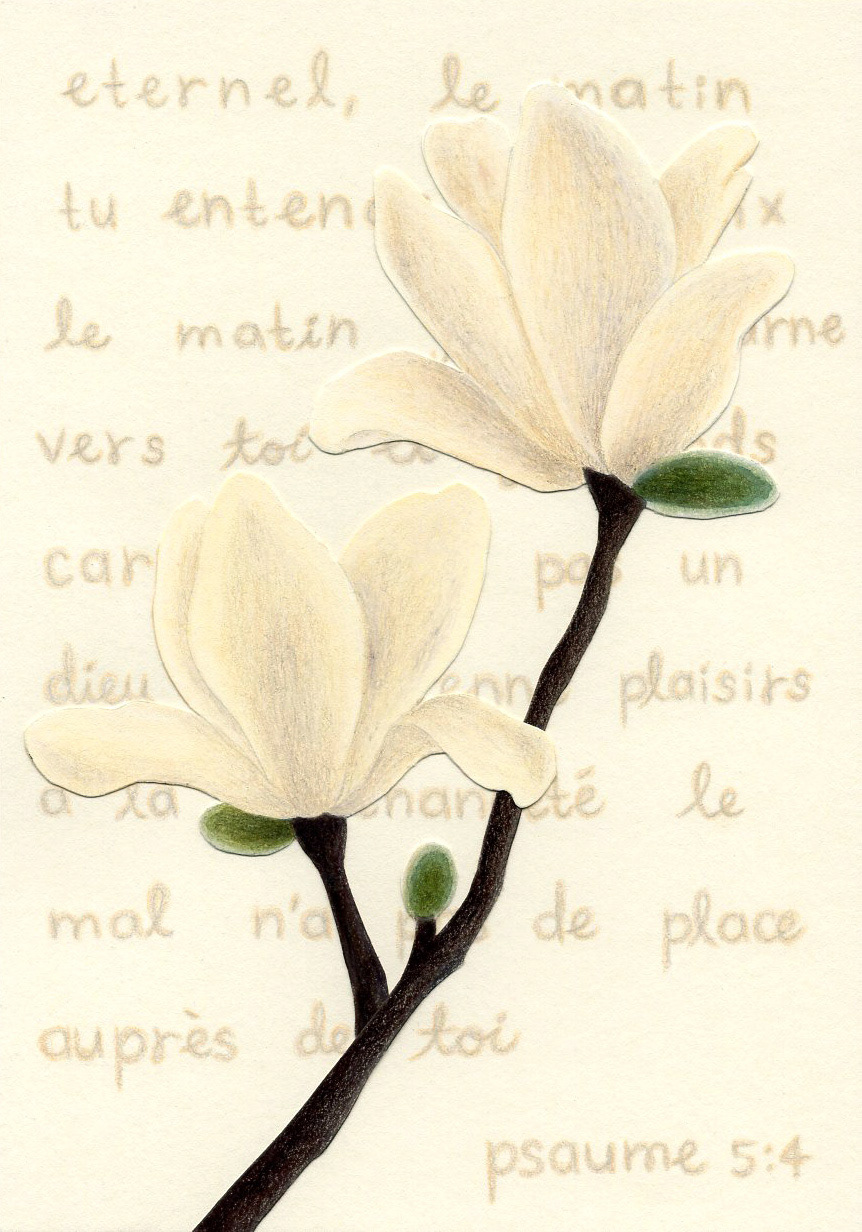 eternel, le matin
tu entend ix
le matin urne
vers toi et ds
car pas un
dieu enne plaisirs
à la enan eté le
mal n'a pas de place
auprès de toi
psaume 5:4